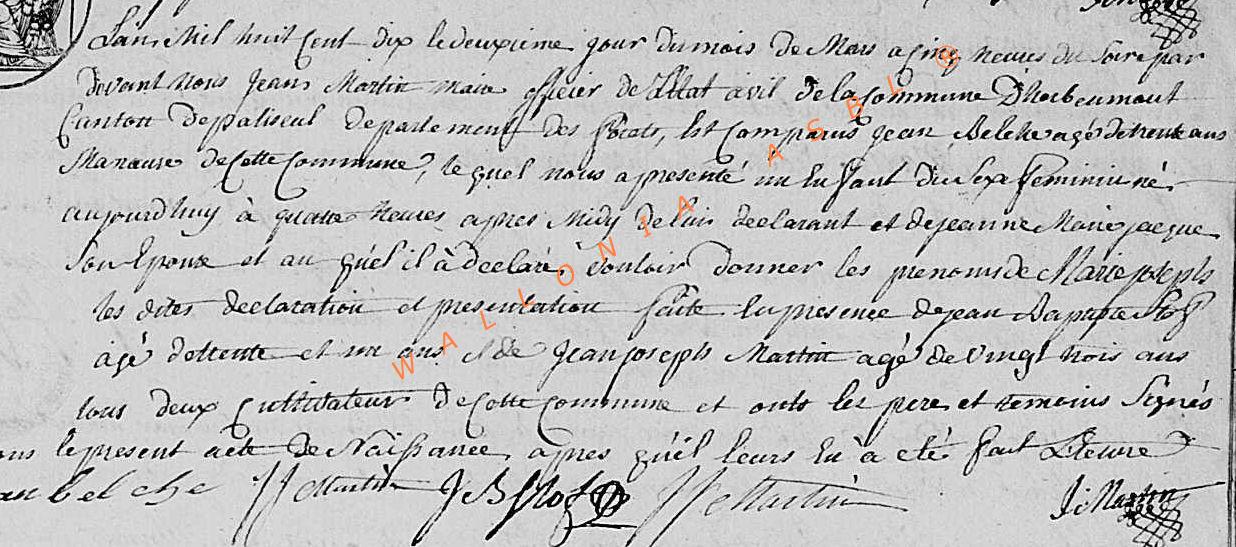 L'an Mil huit cent dix le deuxieme jour du mois de Mars a cinq heures du soire par
devant nous Jean Martin maire officier de l'Etat civil de la Commune D'herbeumont
Canton de paliseul departement des forets, Est comparus jean Belche agé de trente ans
Manœuvre de Cette Commune, le quel nous a presenté un Enfant du Sexe feminin né
aujourdhuy à quatre heures apres Midy de luis declarant et de jeanne Marie jacque
Son Epouse et au quél il à declaré vouloir donner les prenoms de Marie joseph
les dites declaration et presentation faite En presence de jean Baptiste
agé de trente et un ans et de Jean joseph Martin agé de vingt trois ans
tous deux Cultivateur de Cette Commune et onts les pere et temoins Signés
le present acte de Naissance apres qu'il leurs En à eté fait Lecture
belche JJ Martin J B JJ Martin J Martin
WALLONIA ASBL ®